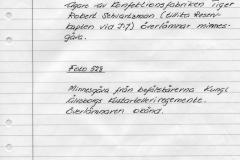 Ägare av Konfektionsfabriken Tiger
Robert Schwartzman
kapten via I-7) överlämnar minnes-
gåva.
Foto 528
Minnesgåva från befälskårerna Kungl
Göteborgs Kustartilleriregemente.
Överlämnaren okänd.